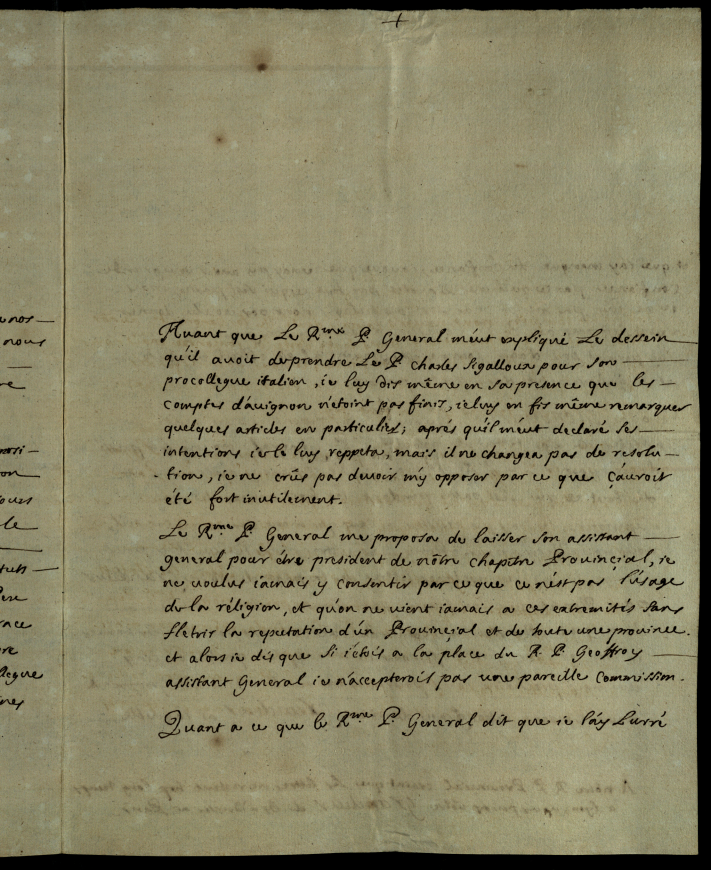 +
Auant que Le Rme P. General m'eut expliqué Le dessein
qu'il auoit de prendre Le P. charles sigalloux pour son
procollegue italien, ie luy dis même en sa presence que les
comptes d'auignon n'etoint pas finis, ie luy en fis même remarquer
quelques articles en particulier; aprés qu'il m'eut declaré ses
intentions ie le luy reppeta, mais il ne changea pas de resolu-
tion, ie ne crûs pas deuoir m'y opposer par ce que ç'auroit
été fort inutilement.
Le Rme P. General me proposa de laisser son assistant
general pour étre president de nôtre chapitre Prouinçial, ie
ne voulus iamais y consentir par ce que ce n'est pas l'úsage
de la réligion, et qu'on ne uient iamais a ces extremités sans
flétrir la reputation d'ún Prouinçial et de toute une prouince.
et alors ie dis que si i'etois a la place du R. P. Geoffroy
assistant General ie n'accepterois pas une pareille Commission.
Quant a ce que le Rme P. General dit que ie l'áy Liuré
a nos
nous
re
on
le
ines